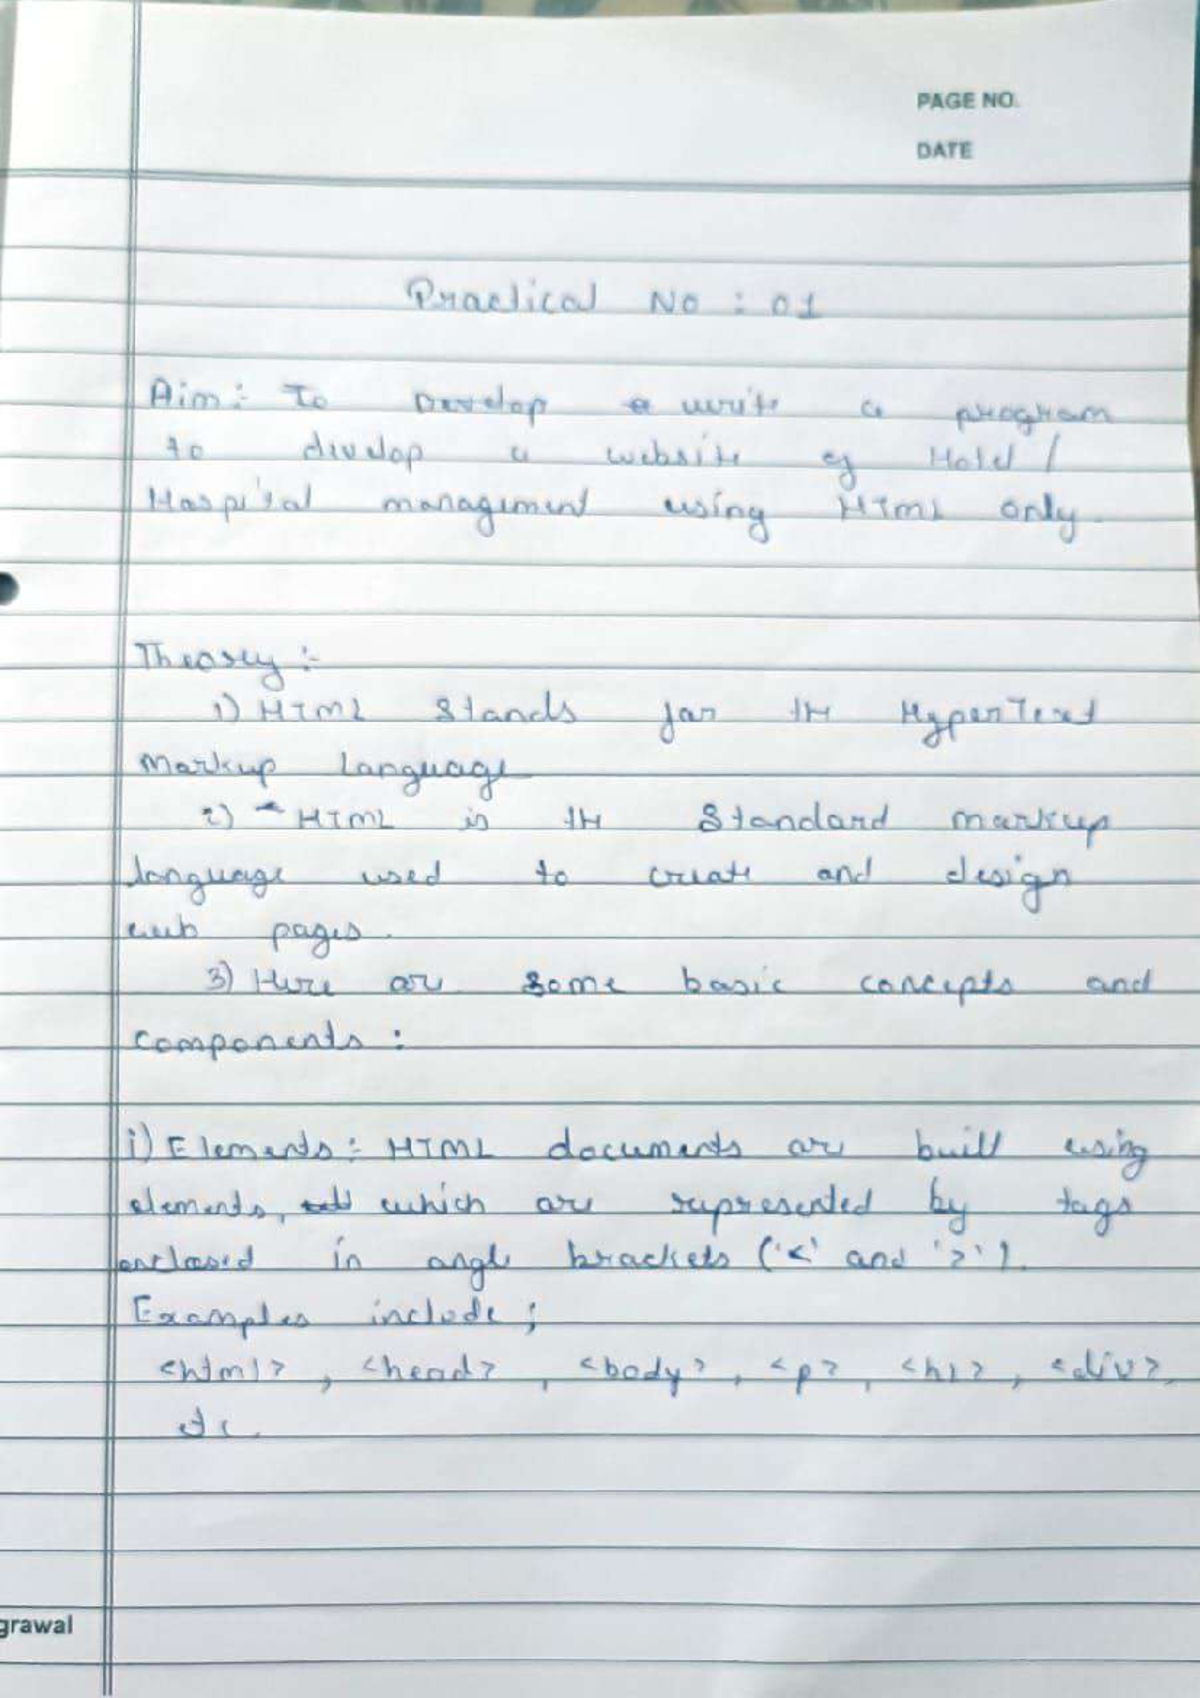 PAGE NO.
DATE
Practical No : 01
Aim :- To Develop a write a program
to develop a website of Hotel /
Hospital management using HTML only.
Theory :-
1) HTML Stands for the HyperText
Markup Language
2) HTML is the Standard markup
language used to create and design
web pages.
3) Here are some basic concepts and
components :
i) Elements :- HTML documents are built using
elements, which are represented by tags
enclosed in angle brackets ('<' and '>').
Examples include ;
<html>, <head>, <body>, <p>, <h1>, <div>,
etc.
grawal